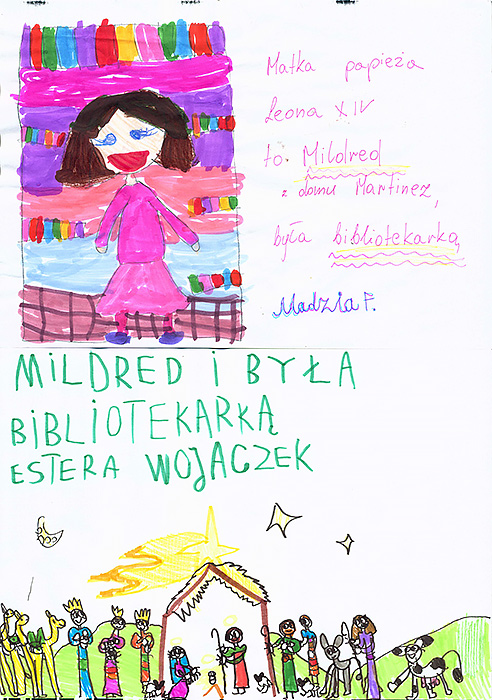 Matka papieża
Leona XIV
to Mildred
z domu Martinez,
była bibliotekarką
Madzia F.
MILDRED I BYŁA
BIBLIOTEKARKĄ
ESTERA WOJACZEK